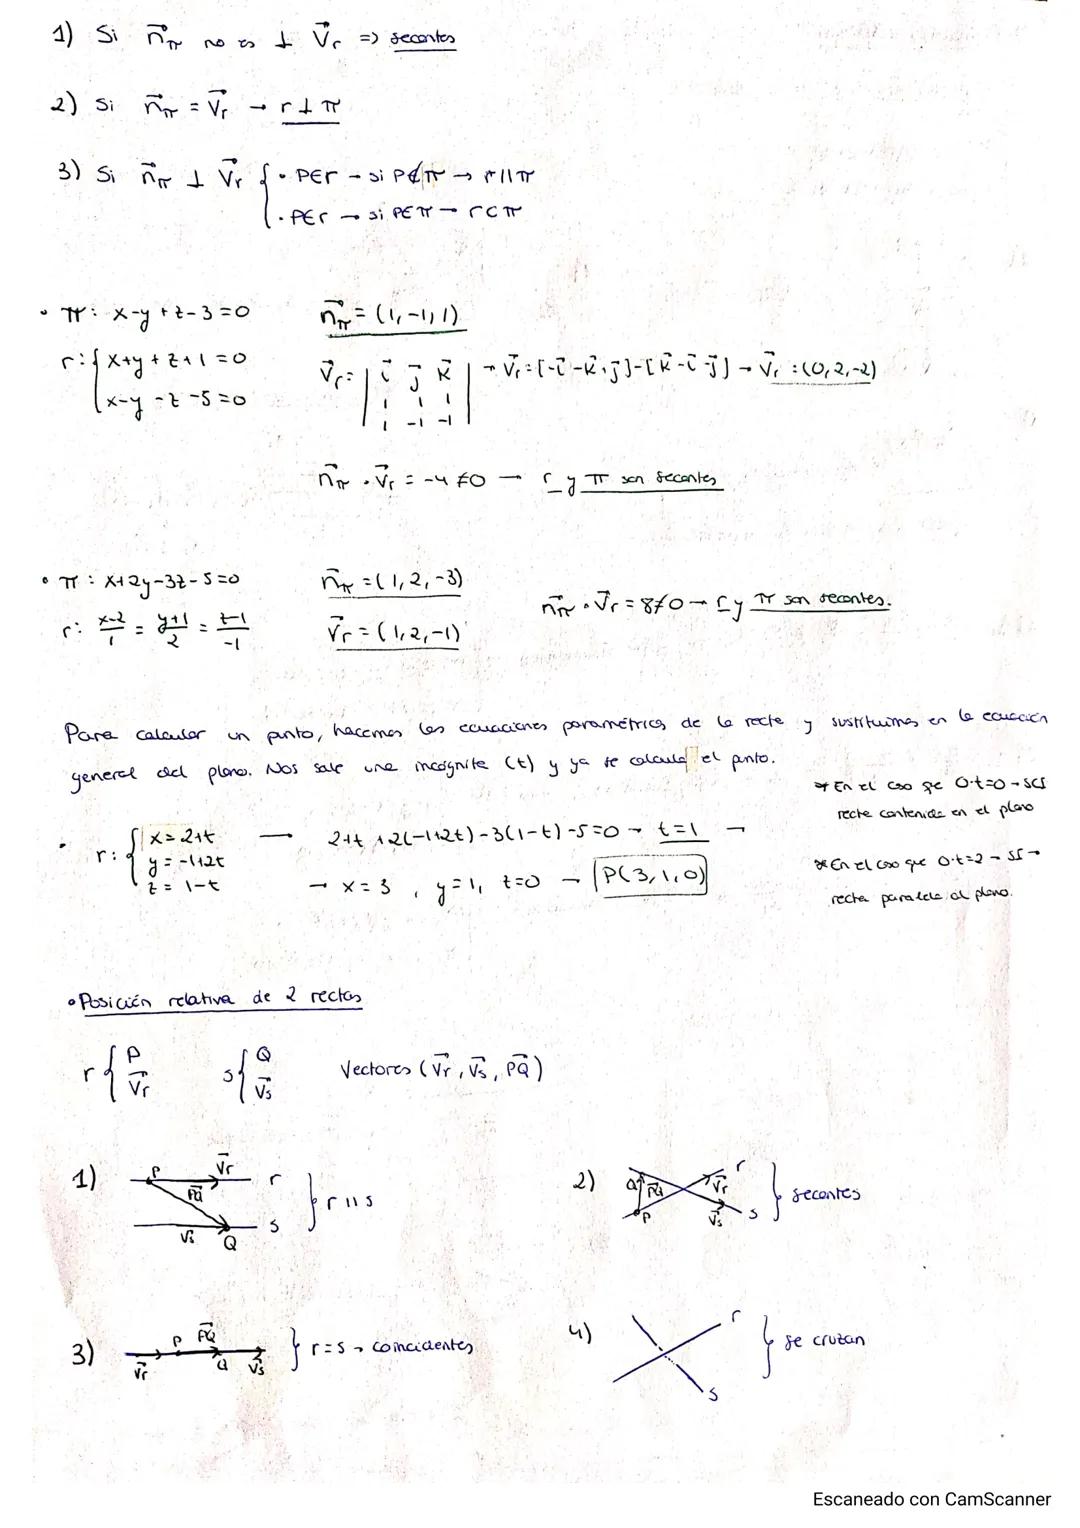 1) Si n⃗π no es ⊥ V⃗r => secantes
2) Si n⃗π = V⃗r → r ⊥ π
3) Si n⃗π ⊥ V⃗r { · P∈r → si P∉π → r∥π
· P∈r → si P∈π → r⊂π
• π: x-y+z-3=0 n⃗π = (1,-1,1)
r: { x+y+z+1=0 V⃗r = | i⃗ j⃗ k⃗ | → V⃗r = [-i⃗-k⃗+j⃗]-[k⃗-i⃗-j⃗] → V⃗r :(0,2,-2)
x-y-z-5=0 1 1 1
1 -1 -1
n⃗π · V⃗r = -4 ≠0 → r y π son secantes
• π: x+2y-3z-5=0 n⃗π = (1,2,-3)
r: x-2/1 = y+1/2 = z-1/-1 V⃗r = (1,2,-1) n⃗π · V⃗r = 8≠0 → r y π son secantes.
Para calcular un punto, hacemos las ecuaciones paramétricas de la recta y sustituimos en la ecuación
general del plano. Nos sale una incógnita (t) y ya se calcula el punto.
* En el caso que 0·t=0 → SCI
recta contenida en el plano
• r: { x=2+t → 2+t+2(-1+2t)-3(1-t)-5=0 → t=1 →
y=-1+2t
z=1-t → x=3, y=1, z=0 → P(3,1,0)
* En el caso que 0·t=2 → SI →
recta paralela al plano.
• Posición relativa de 2 rectas
r { P V⃗r s { Q V⃗s Vectores (V⃗r, V⃗s, PQ⃗)
1) P V⃗r r PQ⃗ V⃗s Q s } r ∥ s
2) Q PQ⃗ P V⃗r r V⃗s s } secantes
3) V⃗r P PQ⃗ Q V⃗s } r=s → coincidentes
4) r s } se cruzan
Escaneado con CamScanner